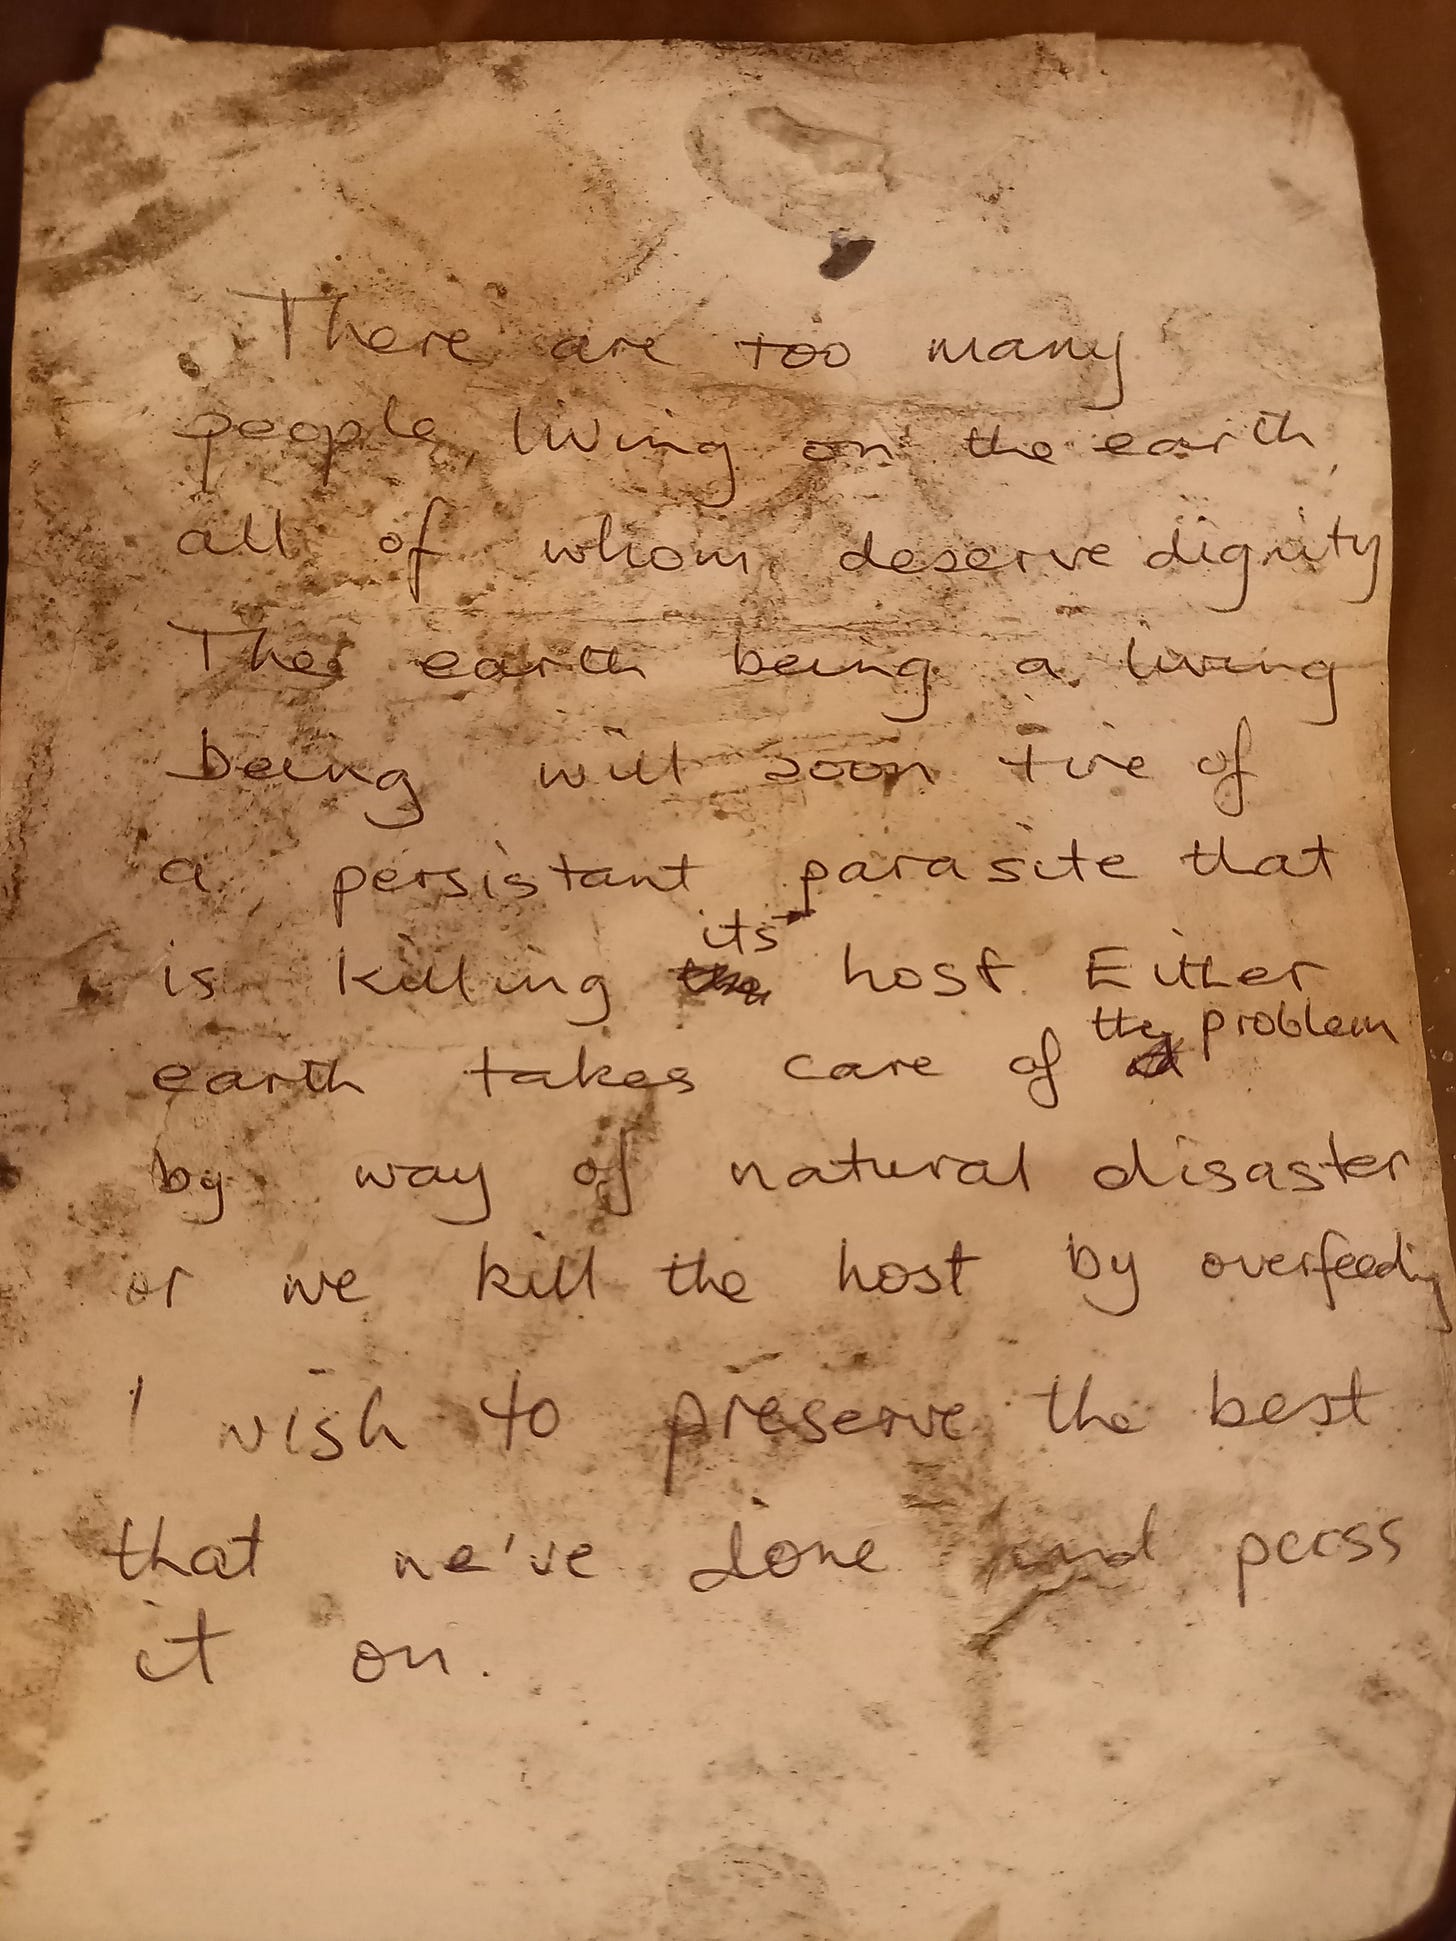 There are too many
people living on the earth,
all of whom deserve dignity
The earth being a living
being will soon tire of
a persistant parasite that
is killing its host. Either
earth takes care of the problem
by way of natural disaster
or we kill the host by overfeeding
I wish to preserve the best
that we've done and pass
it on.